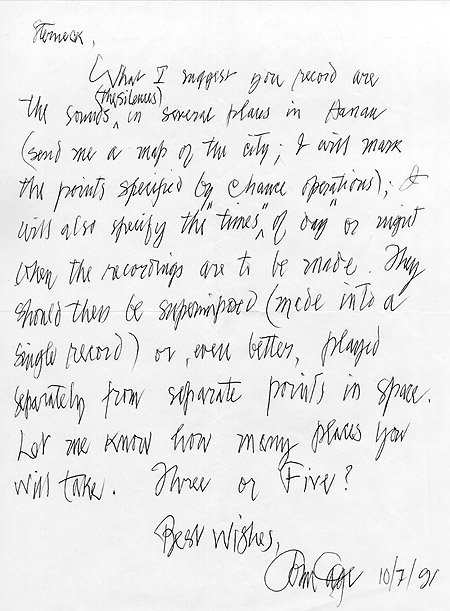 Sterneck,
What I suggest you record are
the sounds (the silences) in several places in Hanau
(send me a map of the city; I will mark
the points specified by chance operations); I
will also specify the "times" of day" or night
when the recordings are to be made. They
should then be superimposed (made into a
single record) or, even better, played
separately from separate points in space.
Let me know how many places you
will take. Three or Five?
Best wishes,
John Cage 10/7/91